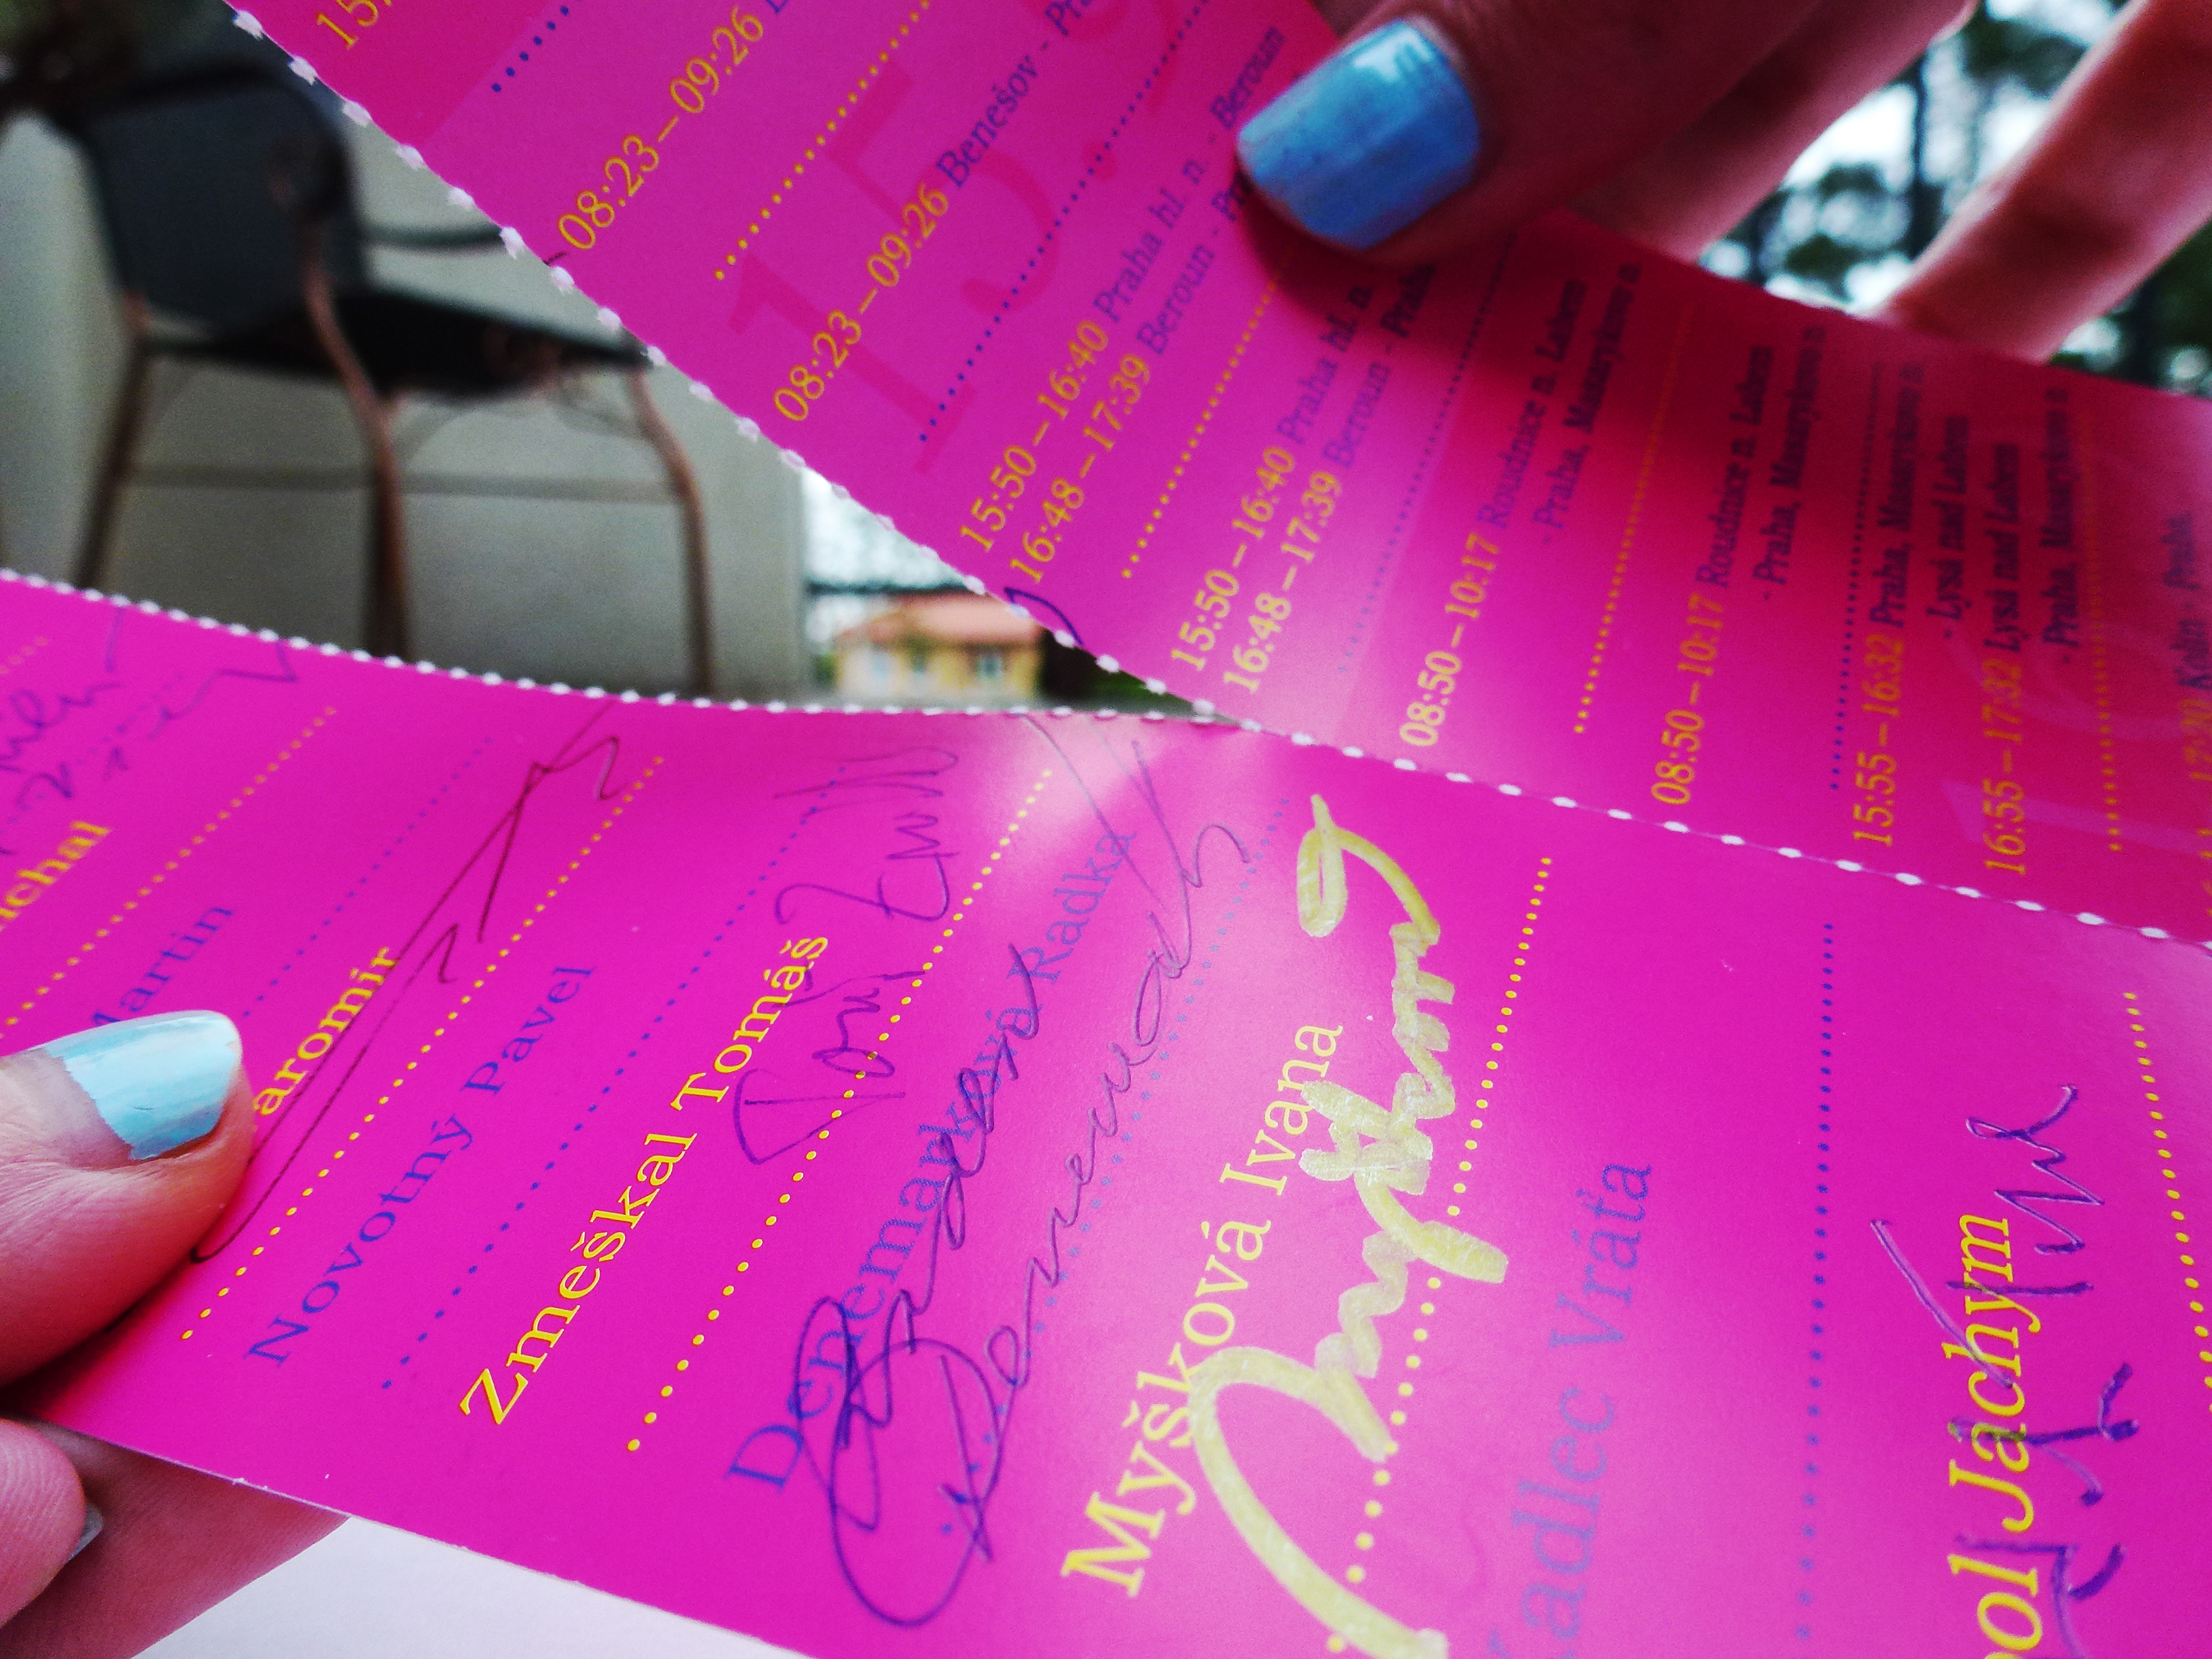 15
08:23–09:26
08:23–09:26 Benešov - Pr
15.9
15:50–16:40 Praha hl. n. - Beroun
16:48–17:39 Beroun - Pr
15:50–16:40 Praha hl. n.
16:48–17:39 Beroun - Praha
08:50–10:17 Roudnice n. Labem
- Praha, Masarykovo n.
08:50–10:17 Roudnice n. Labem
- Praha, Masarykovo n
15:55–16:32 Praha, Masarykovo n.
- Lysá nad Labem
16:55–17:32 Lysá nad Labem
- Praha, Masarykovo n
Kolín - Praha
ichal
Martin
aromír
Novotný Pavel
Zmeškal Tomáš
Denemarková Radka
Denemark
Myšková Ivana
Kadlec Vráťa
pol Jáchym